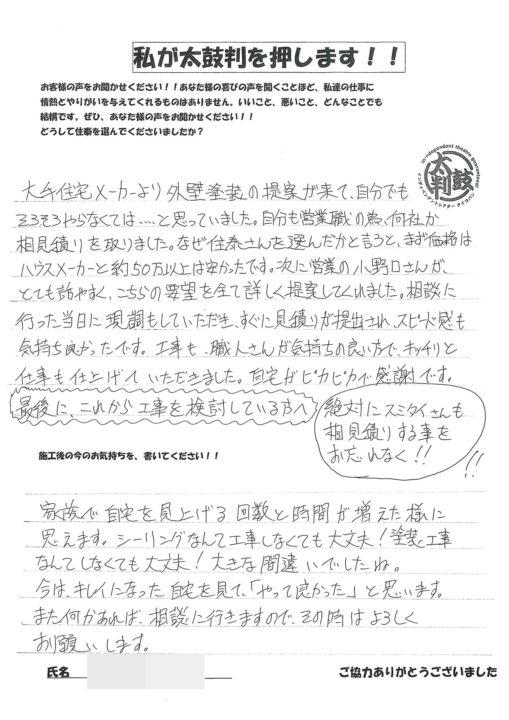 私が太鼓判を押します！！
お客様の声をお聞かせください！！あなた様の喜びの声を聞くことほど、私達の仕事に
情熱とやりがいを与えてくれるものはありません。いいこと、悪いこと、どんなことでも
結構です。ぜひ、あなた様の声をお聞かせください！！
どうして住泰を選んでくださいましたか？
太鼓判
大手住宅メーカーより外壁塗装の提案が来て、自分でも
そろそろやらなくては……と思っていました。自分も営業職の為、何社か
相見積りを取りました。なぜ住泰さんを選んだかと言うと、まず価格は
ハウスメーカーと約50万以上は安かったです。次に営業の小野口さんが、
とても話やすく、こちらの要望を全て詳しく提案してくれました。相談に
行った当日に現調もしていただき、すぐに見積りが提出され、スピード感も
気持ち良かったです。工事も、職人さんが気持ちの良い方で、キッチリと
仕事も仕上げていただきました。自宅がピカピカで感謝です。
最後に、これから工事を検討している方へ
絶対にスミタイさんも
相見積りする事を
お忘れなく!!
!!
施工後の今のお気持ちを、書いてください！！
家族で自宅を見上げる回数と時間が増えた様に
思えます。シーリングなんて工事しなくても大丈夫！塗装工事
なんてしなくても大丈夫！大きな間違いでしたね。
今は、キレイになった自宅を見て、「やって良かった」と思います。
また何かあれば、相談に行きますので、その時はよろしく
お願いします。
氏名
ご協力ありがとうございました